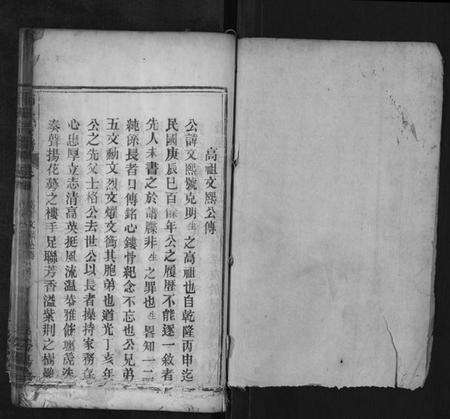 高祖文熙公傳
公諱文熙號克明生之高祖也自乾隆丙申迄
民國庚辰已百餘年公之履歷不能逐一敘者
先人未書之於譜牒非生之罪也生畧知一二
純係長者口傳銘心鏤骨紀念不忘也公兄弟
五文勳文烈文耀文衡其胞弟也道光丁亥年
公之先父士格公去世公以長者操持家務存
心忠厚立志清高英挺風流溫恭雅
奏聲揚花萼之樓手足聯芳香溢紫荊之樹雖